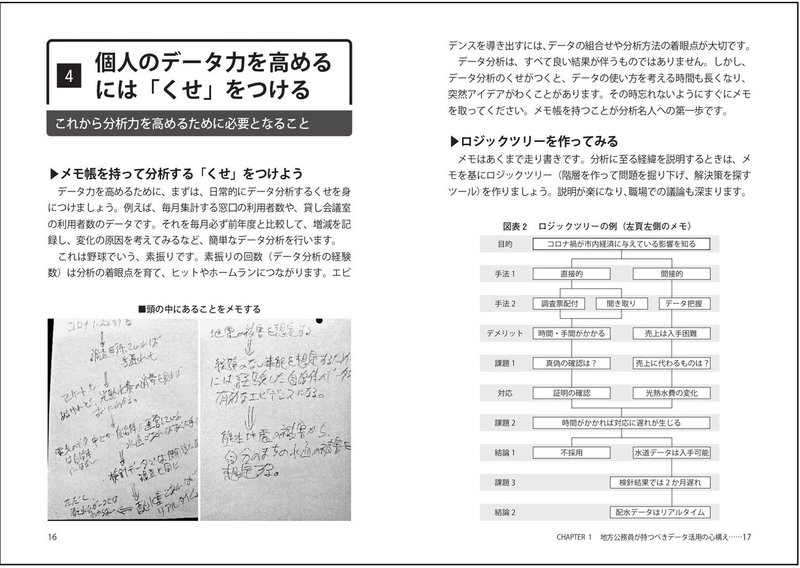 4
個人のデータ力を高める
には「くせ」をつける
これから分析力を高めるために必要となること
▶メモ帳を持って分析する「くせ」をつけよう
データ力を高めるために、まずは、日常的にデータ分析するくせを身
につけましょう。例えば、毎月集計する窓口の利用者数や、貸し会議室
の利用者数のデータです。それを毎月必ず前年度と比較して、増減を記
録し、変化の原因を考えてみるなど、簡単なデータ分析を行います。
これは野球でいう、素振りです。素振りの回数（データ分析の経験
数）は分析の着眼点を育て、ヒットやホームランにつながります。エビ
■頭の中にあることをメモする
地震の被害を想定する
熊本地震の被害から
自分のまちの水道の被害を
想定する。
リアルタイム
16
デンスを導き出すには、データの組合せや分析方法の着眼点が大切です。
データ分析は、すべて良い結果が伴うものではありません。しかし、
データ分析のくせがつくと、データの使い方を考える時間も長くなり、
突然アイデアがわくことがあります。その時忘れないようにすぐにメモ
を取ってください。メモ帳を持つことが分析名人への第一歩です。
▶ロジックツリーを作ってみる
メモはあくまで走り書きです。分析に至る経緯を説明するときは、メ
モを基にロジックツリー（階層を作って問題を掘り下げ、解決策を探す
ツール）を作りましょう。説明が楽になり、職場での議論も深まります。
図表2 ロジックツリーの例（左頁左側のメモ）
目的 コロナ禍が市内経済に与えている影響を知る
手法1 直接的 間接的
手法2 調査票配付 聞き取り データ把握
デメリット 時間・手間がかかる 売上は入手困難
課題1 真偽の確認は？ 売上に代わるものは？
対応 証明の確認 光熱水費の変化
課題2 時間がかかれば対応に遅れが生じる
結論1 不採用 水道データは入手可能
課題3 検針結果では2か月遅れ
結論2 配水データはリアルタイム
CHAPTER 1 地方公務員が持つべきデータ活用の心構え……17